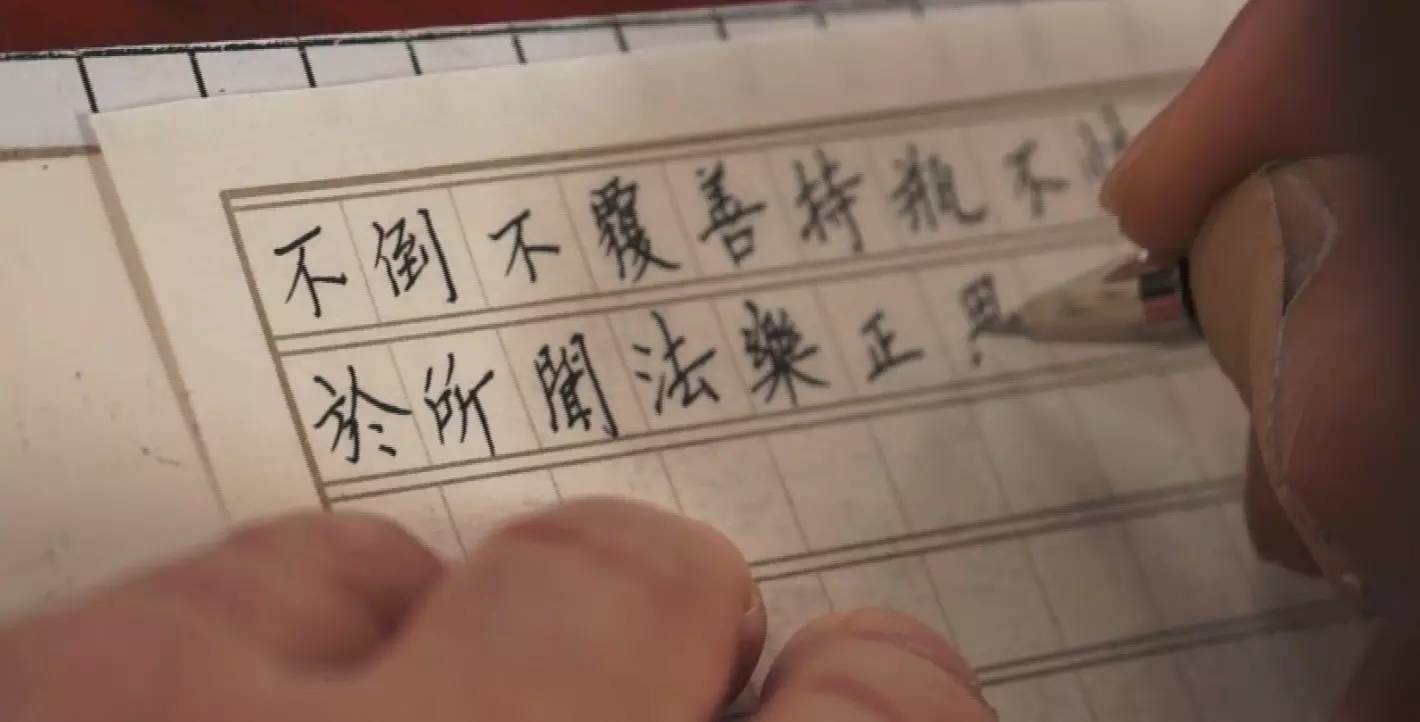 不倒不覆善持瓶不
於所聞法樂正思